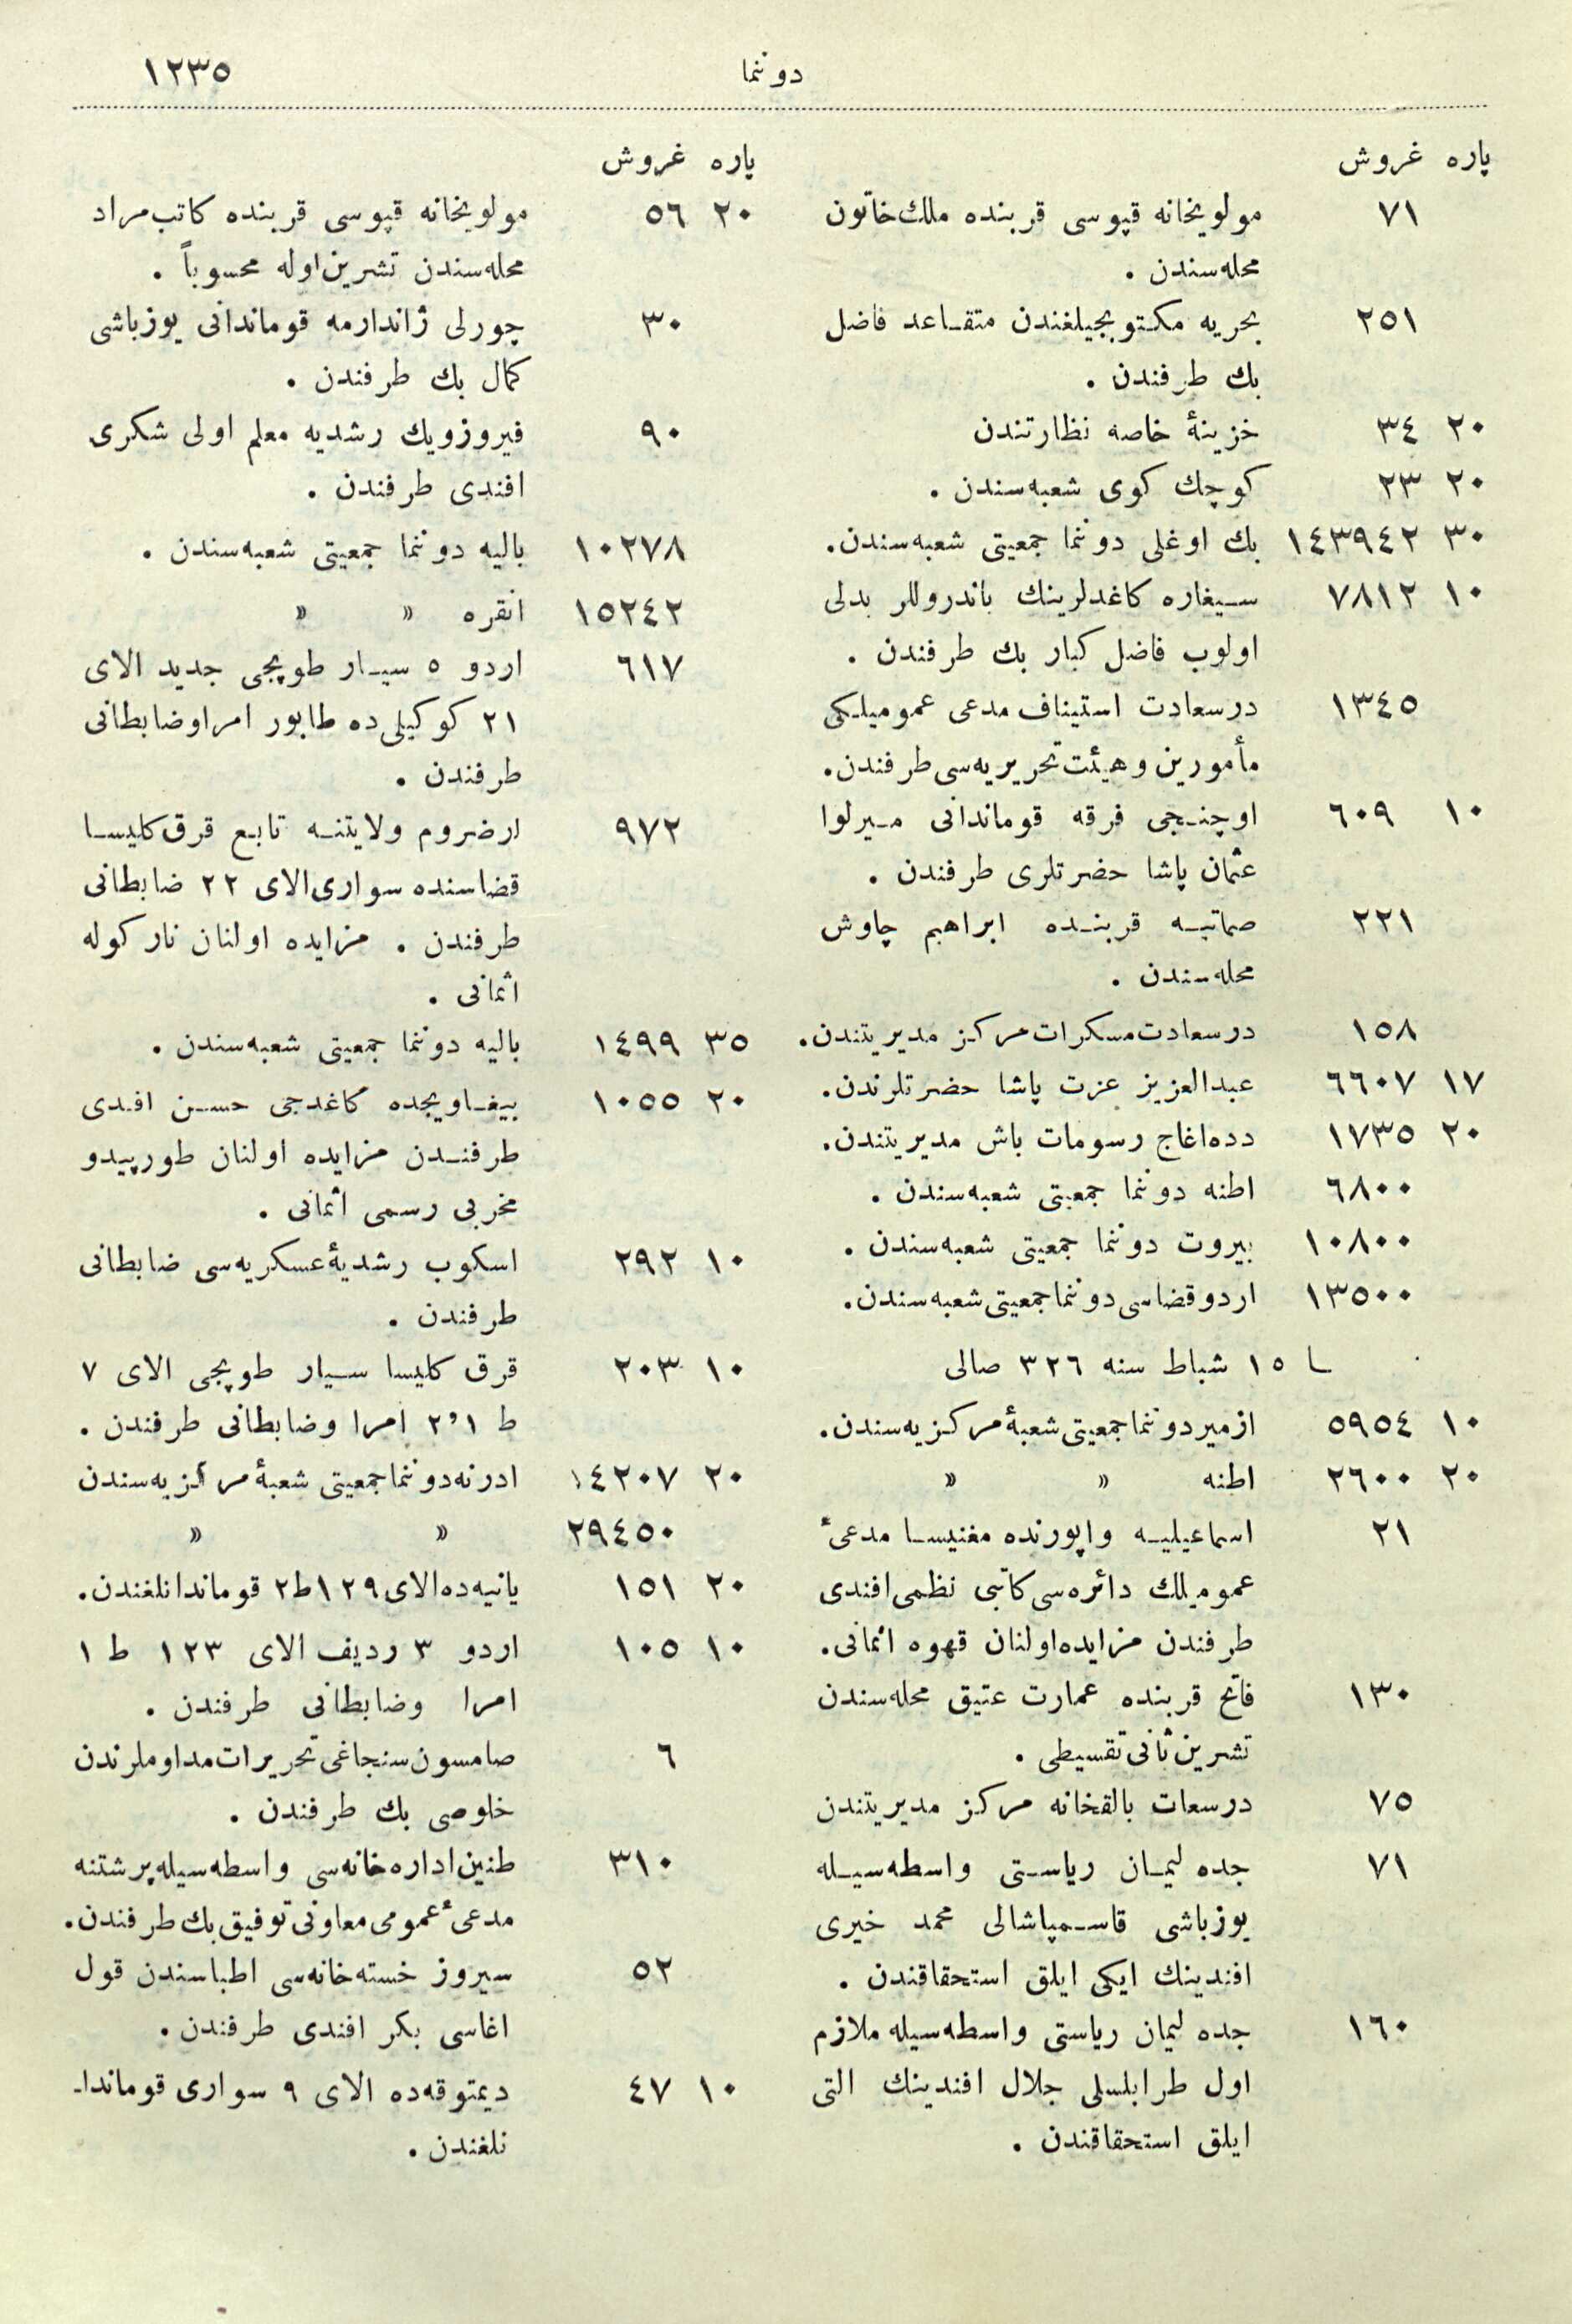 ١٢٣٥
دوننما
پاره غروش
٧١ مولويخانه قپوسى قربنده ملك خاتون
محله سندن .
٢٥١ بحريه مكتوبجيلغندن متقاعد فاضل
بك طرفندن .
٢٠ ٣٤ خزينۀ خاصه نظارتندن
٢٠ ٢٣ كوچك كوى شعبه سندن .
٣٠ ١٤٣٩٤٢ بك اوغلى دوننما جمعيتى شعبه سندن.
١٠ ٧٨١٢ سيغاره كاغدلرينك باندروللر بدلى
اولوب فاضل كبار بك طرفندن .
١٣٤٥ درسعادت استيناف مدعى عموميلكى
مأمورين وهيئت تحريريه سى طرفندن.
١٠ ٦٠٩ اوچنجى فرقه قوماندانى ميرلوا
عثمان پاشا حضرتلرى طرفندن .
٢٢١ صماتيه قربنده ابراهيم چاوش
محله سندن .
١٥٨ درسعادت مسكرات مركز مديريتندن.
١٧ ٦٦٠٧ عبدالعزيز عزت پاشا حضرتلرندن.
٢٠ ١٧٣٥ دده اغاج رسومات باش مديريتندن.
٦٨٠٠ اطنه دوننما جمعيتى شعبه سندن .
١٠٨٠٠ بيروت دوننما جمعيتى شعبه سندن .
١٣٥٠٠ اردو قضاسى دوننما جمعيتى شعبه سندن.
١٥ شباط سنه ٣٢٦ صالى
١٠ ٥٩٥٤ ازمير دوننما جمعيتى شعبۀ مركزيه سندن.
٢٠ ٢٦٠٠ اطنه » »
٢١ اسماعيليه واپورنده مغنيسا مدعئ
عموميلك دائره سى كاتبى نظمى افندى
طرفندن مزايده اولنان قهوه اثمانى.
١٣٠ فاتح قربنده عمارت عتيق محله سندن
تشرين ثانى تقسيطى .
٧٥ درسعات بالقخانه مركز مديريتندن
٧١ جده ليمان رياستى واسطه سيله
يوزباشى قاسمپاشالى محمد خيرى
افندينك ايكى ايلق استحقاقندن .
١٦٠ جده ليمان رياستى واسطه سيله ملازم
اول طرابلسلى جلال افندينك التى
ايلق استحقاقندن .
پاره غروش
٢٠ ٥٦ مولويخانه قپوسى قربنده كاتب مراد
محله سندن تشرين اوله محسوباً .
٣٠ چورلى ژاندارمه قوماندانى يوزباشى
كمال بك طرفندن .
٩٠ فيروزويك رشديه معلم اولى شكرى
افندى طرفندن .
١٠٢٧٨ باليه دوننما جمعيتى شعبه سندن .
١٥٢٤٢ انقره » »
٦١٧ اردو ٥ سيار طوپجى جديد الاى
٢١ كوكيلى ده طابور امراوضابطانى
طرفندن .
٩٧٢ ارضروم ولايتنه تابع قرق كليسا
قضاسنده سوارى الاى ٢٢ ضابطانى
طرفندن . مزايده اولنان ناركوله
اثمانى .
٣٥ ١٤٩٩ باليه دوننما جمعيتى شعبه سندن .
٢٠ ١٠٥٥ بيغاويجده كاغدجى حسن افدى
طرفندن مزايده اولنان طورپيدو
مخربى رسمى اثمانى .
١٠ ٢٩٢ اسكوب رشديۀ عسكريه سى ضابطانى
طرفندن .
١٠ ٢٠٣ قرق كليسا سيار طوپجى الاى ٧
ط ١و٢ امرا وضابطانى طرفندن .
٢٠ ١٤٢٠٧ ادرنه دوننما جمعيتى شعبۀ مركزيه سندن
٢٩٤٥٠ » »
٢٠ ١٥١ يانيه ده الاى ١٢٩ ط٢ قوماندانلغندن.
١٠ ١٠٥ اردو ٣ رديف الاى ١٢٣ ط ١
امرا وضابطانى طرفندن .
٦ صامسون سنجاغى تحريرات مداوملرندن
خلوصى بك طرفندن .
٣١٠ طنين اداره خانه سى واسطه سيله پرشتنه
مدعئ عمومى معاونى توفيق بك طرفندن.
٥٢ سيروز خسته خانه سى اطباسندن قول
اغاسى بكر افندى طرفندن.
١٠ ٤٧ ديمتوقه ده الاى ٩ سوارى قوماندا-
نلغندن .